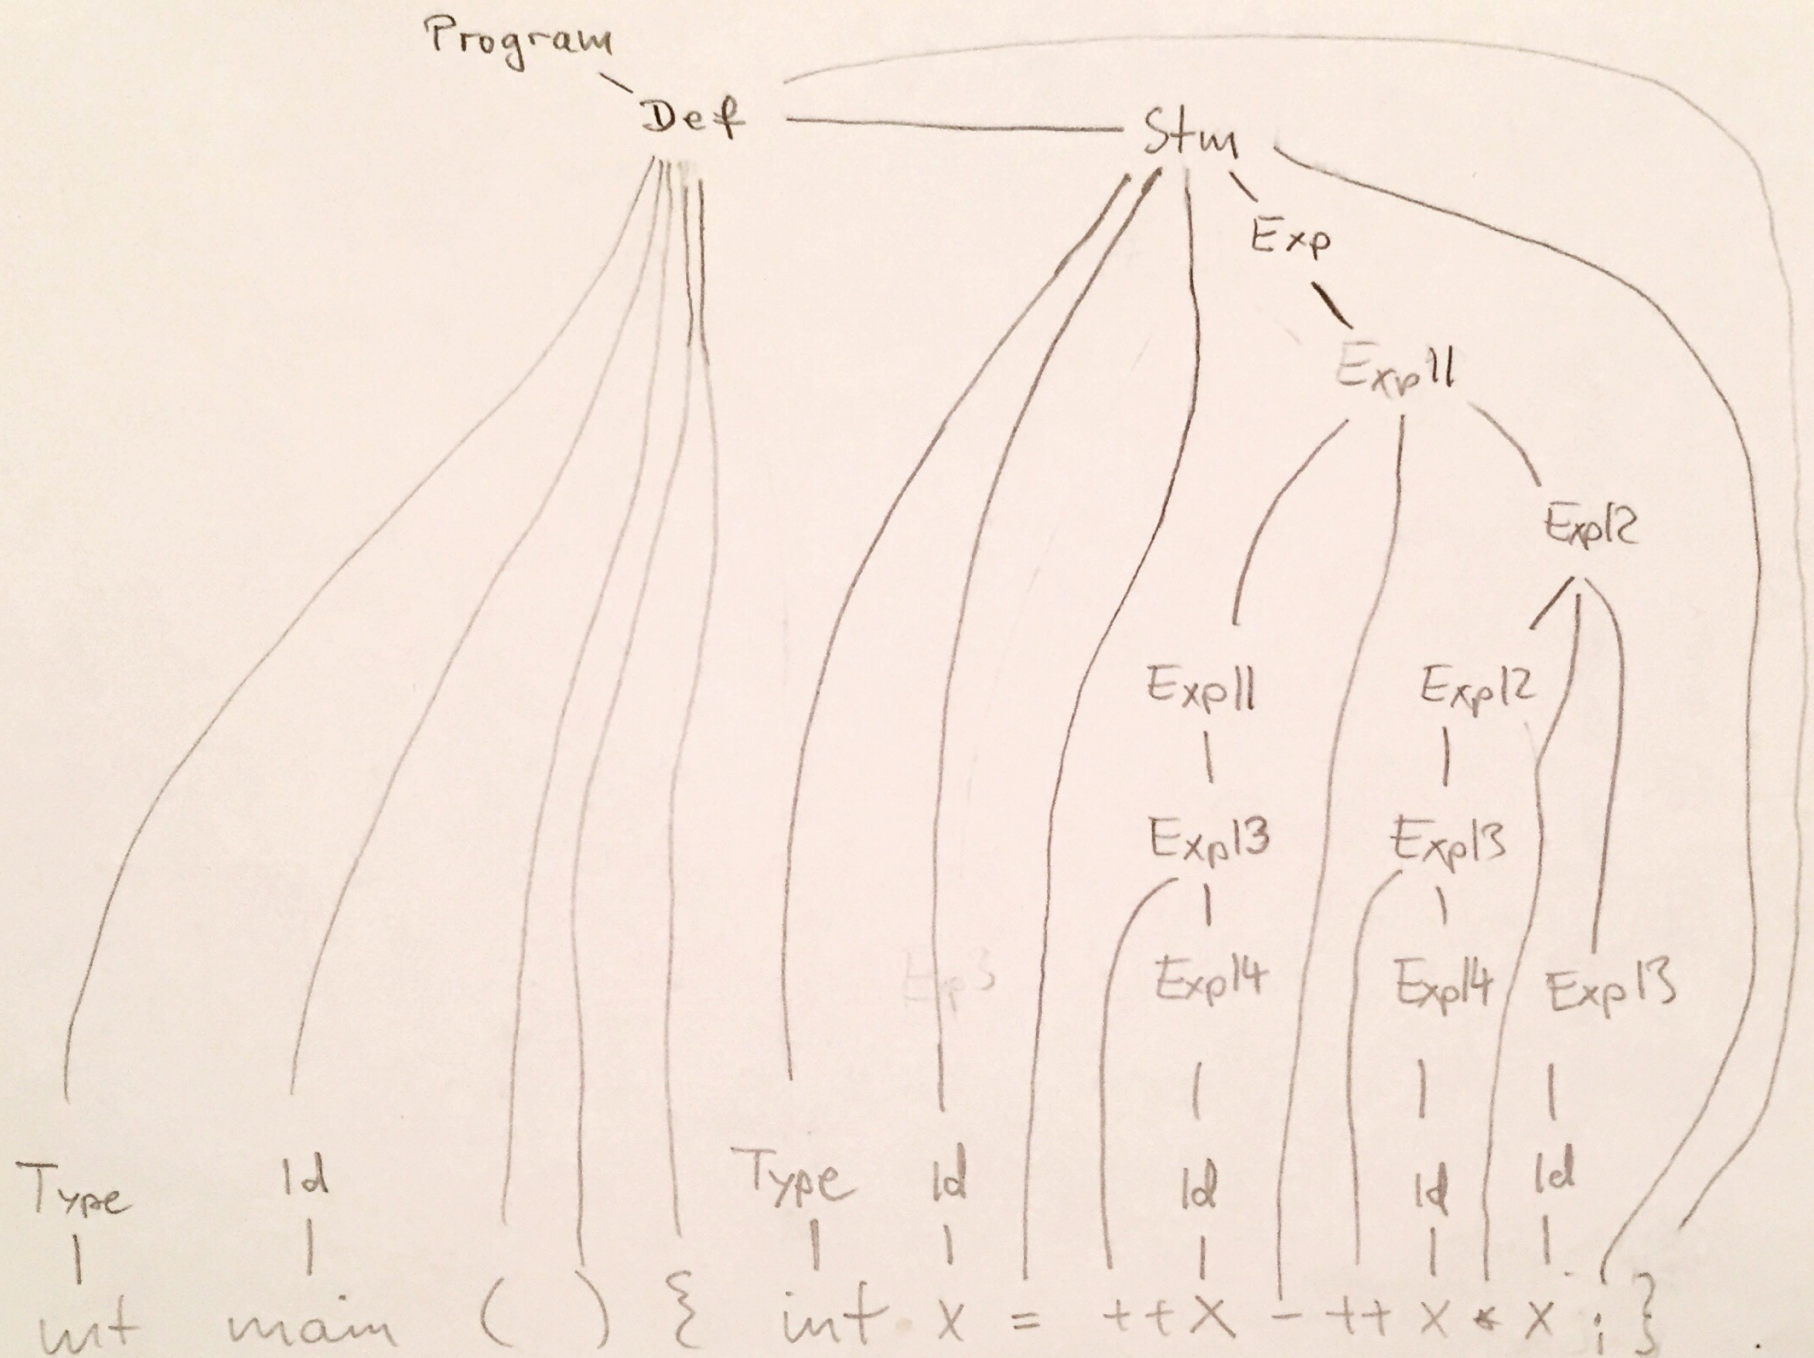 Program
Def Stm
Exp
Exp11
Exp12
Exp11 Exp12
Exp13 Exp13
Exp14 Exp14 Exp13
Type Id Type Id Id Id Id
int main ( ) { int x = ++x - ++x * x ; }